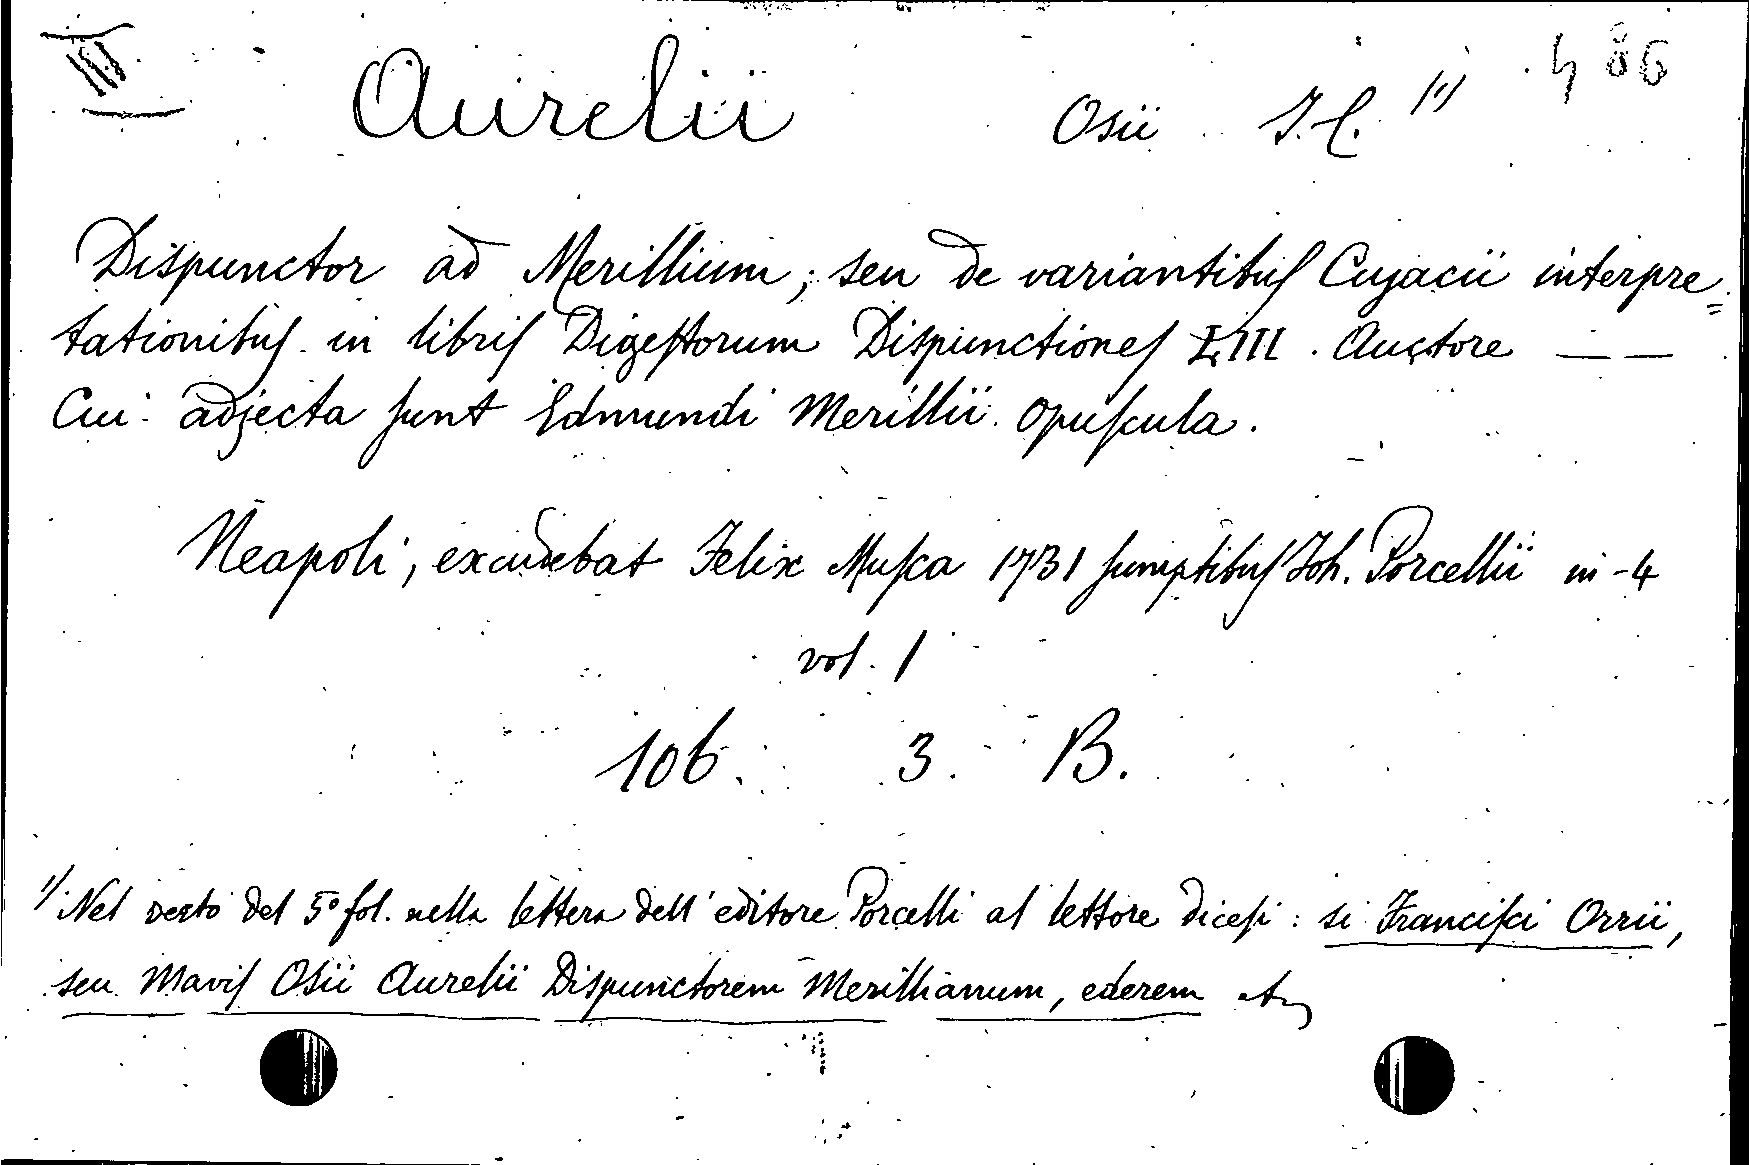 Aurelii Osii J. C. 1) 486
Dispunctor ad Merillium; seu de variantibus Cujacii interpre=
tationibus in libris Digestorum Dispunctiones LIII. Auctore — —
Cui adjecta sunt Edmundi Merillii opuscula.
Neapoli, excudebat Felix Musca 1731 sumptibus Joh. Porcellii in-4
vol. 1
106. 3. B.
1) Nel verto del 5° fol. nella lettera dell'editore Porcelli al lettore dicesi: si Francisci Orrii,
seu Mavis Osii Aurelii Dispunctorem Merillianum, ederem